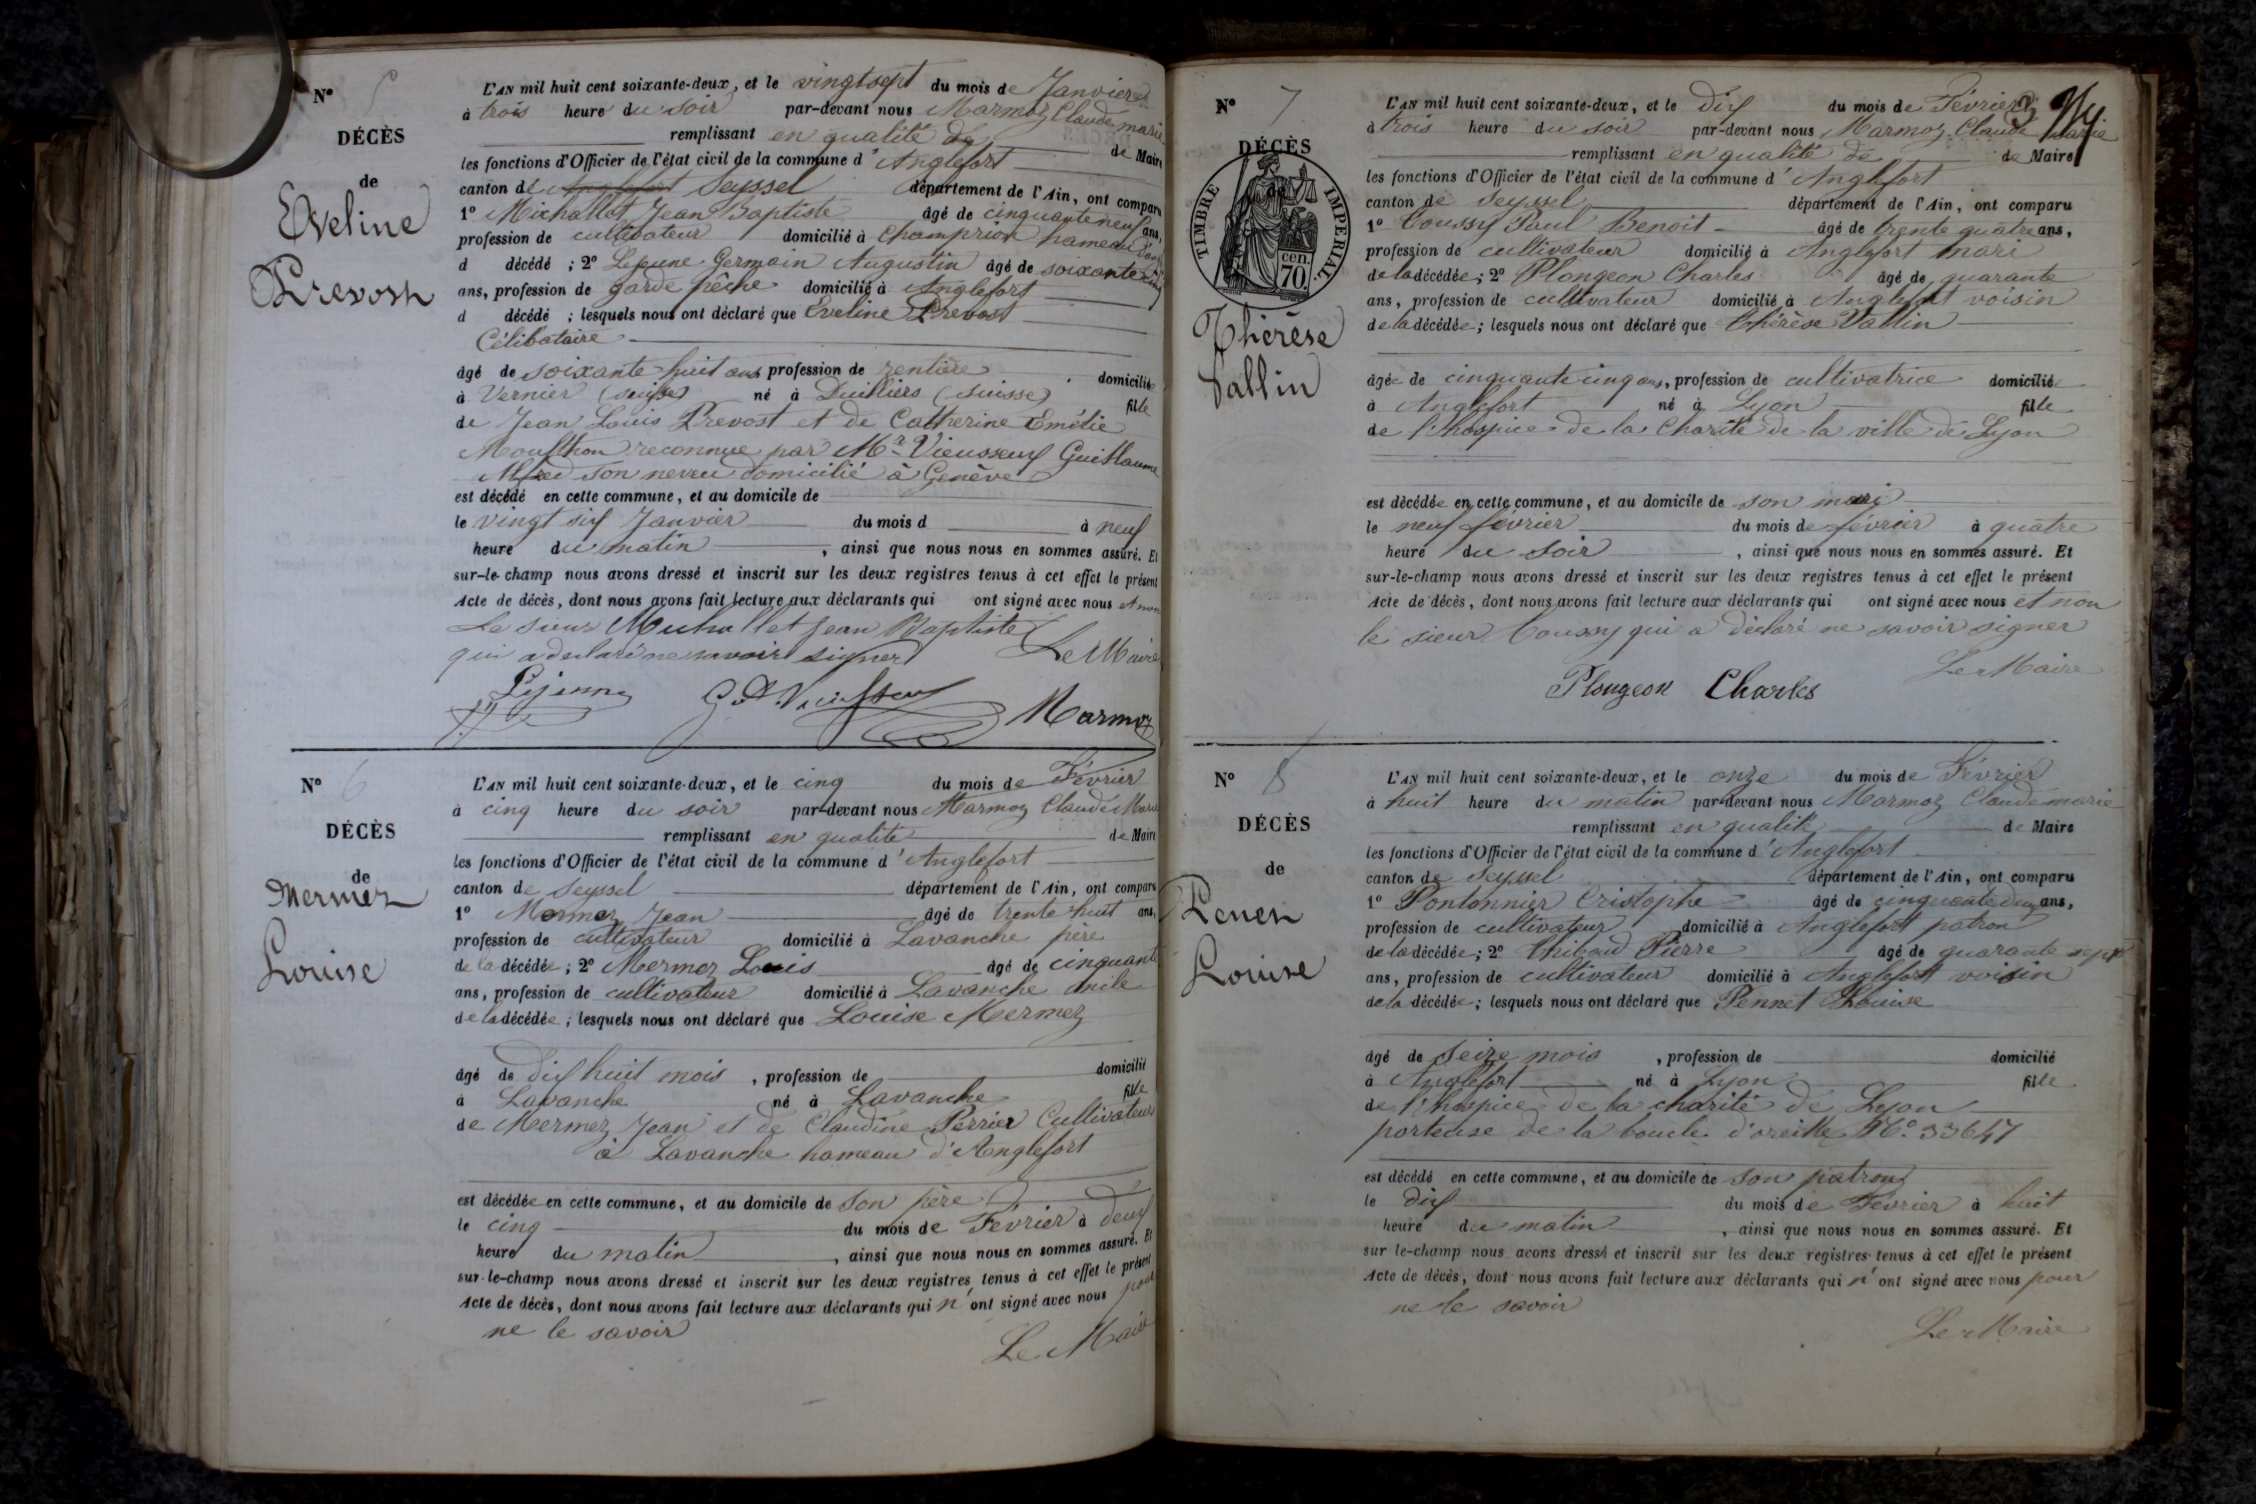 N° 5
DÉCÈS
de
Eveline
Prevost
L'AN mil huit cent soixante-deux, et le vingt sept du mois de Janvier
à trois heure du soir par-devant nous Marmoz Claude marie
remplissant en qualité de de Maire
les fonctions d'Officier de l'état civil de la commune d'Anglefort
canton de Anglefort Seyssel département de l'Ain, ont comparu
1° Michallet Jean Baptiste âgé de cinquante neuf ans,
profession de cultivateur domicilié à Champrion hameau
d décédé ; 2° Lejeune Germain Augustin âgé de soixante
ans, profession de garde pêche domicilié à Anglefort
d décédé ; lesquels nous ont déclaré que Eveline Prevost
Célibataire
âgé de soixante huit ans profession de rentière domiciliée
à Vernier (suisse) né à Duilliers (suisse) fille
de Jean Louis Prevost et de Catherine Emélie
reconnue par Mr Vieusseux Guillaume
Alfred son neveu domicilié à Genève
est décédé en cette commune, et au domicile de
le vingt six Janvier du mois d à neuf
heure du matin , ainsi que nous nous en sommes assuré. Et
sur-le-champ nous avons dressé et inscrit sur les deux registres tenus à cet effet le présent
Acte de décès, dont nous avons fait lecture aux déclarants qui ont signé avec nous et non
Le sieur Michallet Jean Baptiste
qui a declaré ne savoir signer Le Maire
Lejeune Marmoz
N° 6
DÉCÈS
de
Mermez
Louise
L'AN mil huit cent soixante-deux, et le cinq du mois de Février
à cinq heure du soir par-devant nous Marmoz Claude Marie
remplissant en qualité de Maire
les fonctions d'Officier de l'état civil de la commune d'Anglefort
canton de Seyssel département de l'Ain, ont comparu
1° Mermez Jean âgé de trente huit ans,
profession de cultivateur domicilié à Lavanche père
de la décédée ; 2° Mermez Louis âgé de cinquante
ans, profession de cultivateur domicilié à Lavanche oncle
de la décédée ; lesquels nous ont déclaré que Louise Mermez
âgé de dix huit mois , profession de domicilié
à Lavanche né à Lavanche fille
de Mermez Jean et de Claudine Perrier Cultivateurs
à Lavanche hameau d'Anglefort
est décédée en cette commune, et au domicile de son père
le cinq du mois de Février à deux
heure du matin , ainsi que nous nous en sommes assuré. Et
sur-le-champ nous avons dressé et inscrit sur les deux registres tenus à cet effet le présent
Acte de décès, dont nous avons fait lecture aux déclarants qui n'ont signé avec nous pour
ne le savoir
Le Maire
3
N° 7
DÉCÈS
de
TIMBRE IMPÉRIAL.
cen.
70.
Thérèse
Vallin
L'AN mil huit cent soixante-deux, et le dix du mois de Février
à trois heure du soir par-devant nous Marmoz Claude marie
remplissant en qualité de de Maire
les fonctions d'Officier de l'état civil de la commune d'Anglefort
canton de Seyssel département de l'Ain, ont comparu
1° Coussy Paul Benoit âgé de trente quatre ans,
profession de cultivateur domicilié à Anglefort mari
de la décédée ; 2° Plongeon Charles âgé de quarante
ans, profession de cultivateur domicilié à Anglefort voisin
de la décédée ; lesquels nous ont déclaré que Thérèse Vallin
âgée de cinquante cinq ans, profession de cultivatrice domiciliée
à Anglefort né à Lyon fille
de l'hospice de la Charité de la ville de Lyon
est décédée en cette commune, et au domicile de son mari
le neuf février du mois de février à quatre
heure du soir , ainsi que nous nous en sommes assuré. Et
sur-le-champ nous avons dressé et inscrit sur les deux registres tenus à cet effet le présent
Acte de décès, dont nous avons fait lecture aux déclarants qui ont signé avec nous et non
le sieur Coussy qui a déclaré ne savoir signer
Le Maire
Plongeon Charles
N° 8
DÉCÈS
de
Penen
Louise
L'AN mil huit cent soixante-deux, et le onze du mois de Février
à huit heure du matin par-devant nous Marmoz Claude marie
remplissant en qualité de Maire
les fonctions d'Officier de l'état civil de la commune d'Anglefort
canton de Seyssel département de l'Ain, ont comparu
1° Pontonnier Cristophe âgé de cinquante deux ans,
profession de cultivateur domicilié à Anglefort patron
de la décédée ; 2° Thibaud Pierre âgé de quarante sept
ans, profession de cultivateur domicilié à Anglefort voisin
de la décédée ; lesquels nous ont déclaré que Pennet Louise
âgé de seize mois , profession de domicilié
à Anglefort né à Lyon fille
de l'hospice de la charité de Lyon
porteuse de la boucle d'oreille N° 33647
est décédé en cette commune, et au domicile de son patron
le dix du mois de Février à huit
heure du matin , ainsi que nous nous en sommes assuré. Et
sur le-champ nous avons dressé et inscrit sur les deux registres tenus à cet effet le présent
Acte de décès, dont nous avons fait lecture aux déclarants qui n'ont signé avec nous pour
ne le savoir
Le Maire